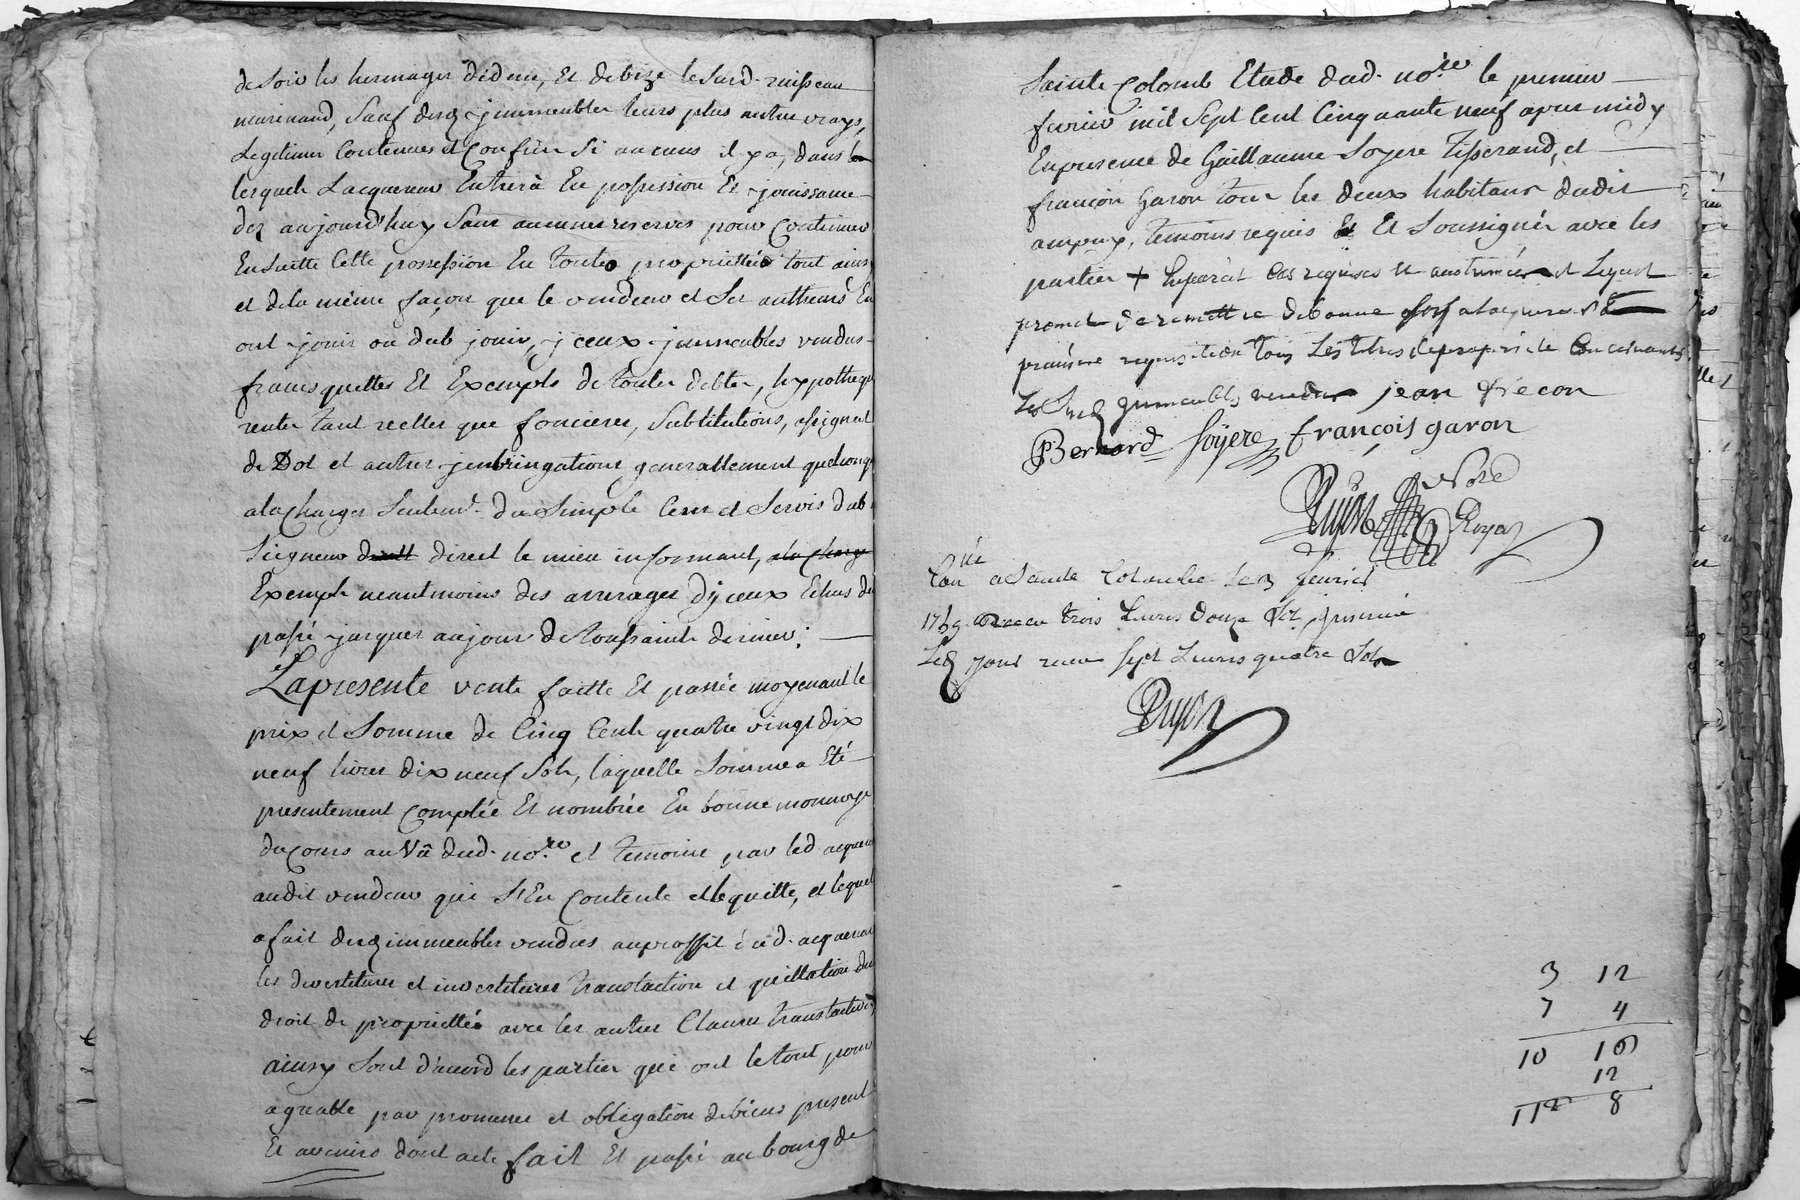 de soir les hermages dedem, Et de bize le surd. ruisseau
murinand, sauf desq. jmmeubles leurs plus autres vrays,
Legitimes Contenues et Confins si aucuns il y a, dans
lesquels Lacquereur Entrera En possession Et jouissance
dez aujourd'huy sans aucunes reserves pour Continuer
Ensuitte Cette possession En toute proprietté tout ainsy
et de la même façon que le vendeur et ses autheurs En
ont jouir ou dub jouir, yceux jmmeubles vendus
francs quittes Et Exempts de toutes debtes, hypotheques
rentes tant reelles que foncieres, substitutions, assignat
de Dot et autres generallement quelconq
a la Charges seulem.t du simple Cens et servis dub
seigneur direct le mieu informant, a la Charge
Exempts neantmoins des arrerages d'yceux Echus du
passé jusques au jour de toussaints dernier:
La presente vente faitte Et passée moyenant le
prix et somme de Cinq Cents quatre vingt dix
neuf livres dix neuf sols, laquelle somme a Eté
presentement Comptée Et nombrée En bonne monnoye
du Cours au Vû dud. no.re et temoins par led. acquereur
audit vendeur qui s'En Contente et le quitte, et lequel
a fait desq. immeubles vendus au proffit dud. acquereur
les devestitures et investitures translaction et quittation du
droit de proprietté avec les autres Clauses translatives
ainsy sont d'acord les parties qui ont le tout pour
agreable par promesse et obligation de biens present
Et avenirs dont acte fait Et passé au bourg de
Sainte Colomb Etude dud. no.re le premier
fevrier mil sept Cent Cinquante neuf apres midy
En presence de Guillaume Soyere Tisserand, et
françois Garon tous les deux habitans dudit
ampuy, temoins requis Et Soussignés avec les
parties + Lequel
promet de remettre de bonne foy a lacquereur a
premiere requisition tous les titres de proprieté Concernants
Les susd. jmmeubles vendus jean Precon
Bernard Soÿere françois garon
Puyon No.re
Royal
Con.lé a Sainte Colombe le 3 fevrier
1759 Receu trois Livres douze s. jnsinué
Led. jour receu sept Livres quatre sols
Puyon
3 12
7 4
10 16
12
11 8